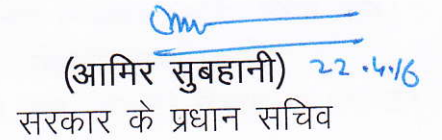 (आमिर सुबहानी) 22.4.16
सरकार के प्रधान सचिव